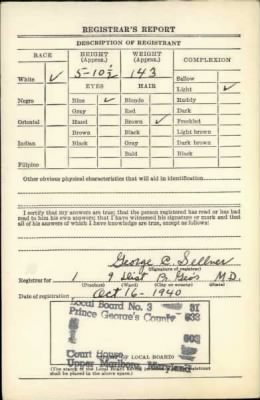 REGISTRAR'S REPORT
DESCRIPTION OF REGISTRANT
RACE HEIGHT (Approx.) WEIGHT (Approx.) COMPLEXION
5-10½ 143
White ✓ Sallow
EYES HAIR Light ✓
Negro Blue ✓ Blonde Ruddy
Gray Red Dark
Oriental Hazel Brown ✓ Freckled
Brown Black Light brown
Indian Black Gray Dark brown
Bald Black
Filipino
Other obvious physical characteristics that will aid in identification
I certify that my answers are true; that the person registered has read or has had
read to him his own answers; that I have witnessed his signature or mark and that
all of his answers of which I have knowledge are true, except as follows:
George C. Sellner
(Signature of registrar)
Registrar for 1 9 Dist P. Geo's M.D.
(Precinct) (Ward) (City or county) (State)
Date of registration Oct 16-1940
Local Board No. 3 81
Prince George's County 033
003
Court House
Upper Marlboro, Maryland
(STAMP OF LOCAL BOARD)
(The stamp of the Local Board
shall be placed in the above space.)